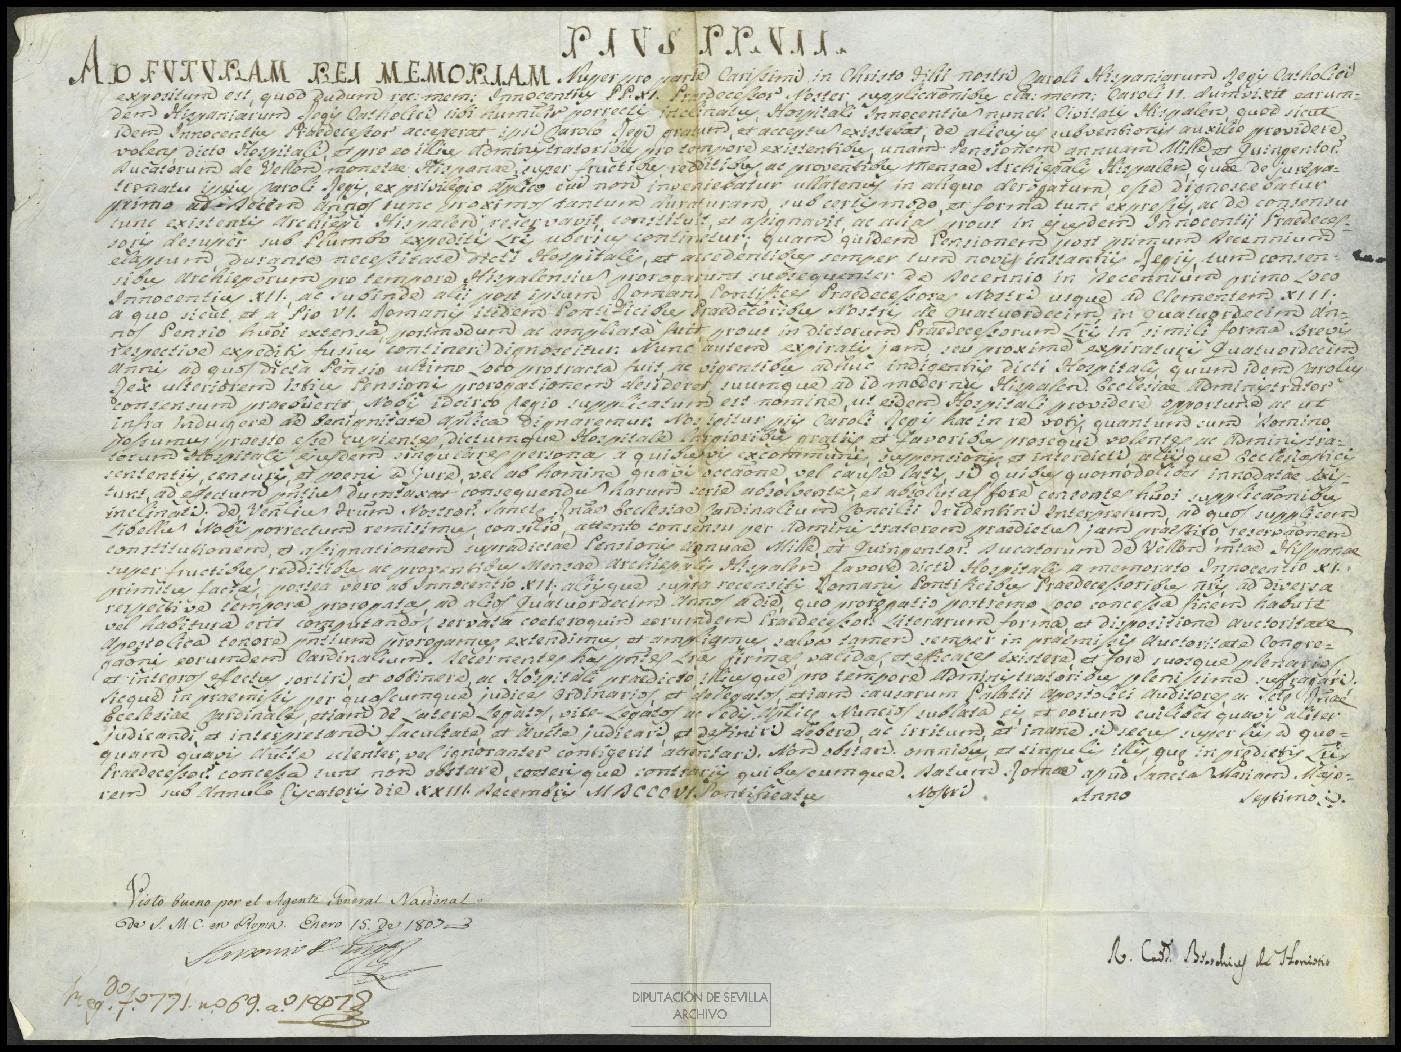 PIUS PP. VII.
AD FUTURAM REI MEMORIAM Nuper pro parte Carissimi in Christo Filii nostri Caroli Hispaniarum Regis Catholici
expositum est, quod dudum rec: mem: Innocentius PP. XI. Praedecessor Noster supplicaõnibus cla: mem: Caroli II. dum vixit earum-
dem Hispaniarum Regis Catholici sibi humiliter porrectis inclinatus, Hospitali Innocentius nuncũ Civitatis Hispalen̄, quod sicut
idem Innocentius Praedecessor acceperat ipsi Carolo Regi gratum, et acceptum existebat, de alicujus subventionis auxilio providere
volens dicto Hospitali, et pro eo illius Administratoribus pro tempore existentibus, unam Pensionem annuam Mille, et Quingentor̄
Ducatorum de Vellon monetae Hispanae, super fructibus, redditibus, ac proventibus Mensae Archiepalis Hispalen̄, quae de Jurepa-
tronatus ipsius Caroli Regis ex privilegio Aplico cui non inveniebatur ullatenus in aliquo derogatum esse dignoscebatur
primo ad Decem annos tunc proximos tantum duraturam, sub certis modo, et forma tunc expressis, ac de consensu
tunc existentis Archiepi Hispalen̄ reservavit, constituit, et assignavit, ac alias prout in ejusdem Innocentii Praedeces-
soris desuper sub Plumbo expeditis Lris uberius continetur; quam quidem Pensionem post primum Decennium
elapsum durante necessitate dicti Hospitalis, et accedentibus semper tum novis instantiis Regis, tum consen-
sibus Archieporum pro tempore Hispalensium prorogarunt subsequenter de Decennio in Decennium primo loco
Innocentius XII. ac subinde alii post ipsum Romani Pontifices Praedecessores Nostri usque ad Clementem XIII.
a quo sicut, et a Pio VI. Romanis itidem Pontificibus Praedecessoribus Nostris de Quatuordecim in Quatuordecim An-
nos Pensio huõi extensa, postmodum ac ampliata fuit prout in dictorum Praedecessorum Lris in simili forma Brevis
respective expeditis fusius contineri dignoscitur. Nunc autem expiratis jam seu proxime expiraturis Quatuordecim
Annis ad quos dicta Pensio ultimo loco protracta fuit, ac vigentibus adhuc indigentiis dicti Hospitalis, quum idem Carolus
Rex ulteriorem istius Pensionis prorogationem desideret, suumque ad id modernus Hispalen̄ Ecclesiae Administrator
consensum praebuerit Nobis idcirco Regio supplicatum est nomine, ut eidem Hospitali providere opportune ac ut
infra indulgere de benignitate Aplica dignaremur. Nos igitur piis Caroli Regis hac in re votis, quantum cum Domino
possumus praesto esse cupientes, dictumque Hospitale largioribus gratiis et favoribus prosequi volentes ac Administra-
torum Hospitalis ejusdem singulares personas a quibusvis excommunis, suspensionis et interdicti aliisque Ecclesiasticis
sententiis, censuris, et poenis a jure, vel ab homine quavis occaõne, vel causa latis, si quibus quomodolibet innodatae exis-
tunt, ad effectum pntium dumtaxat consequendum harum serie absolventes, et absolutas fore censentes huõi supplicaõnibus
inclinati. De Venlium Frum Nostror̄ Sanctae Rnae Ecclesiae Cardinalium Concilii Tridentini Interpretum, ad quos supplicem
Libellum Nobis porrectum remisimus, consilio, attento consensu per Administratorem praedictum jam praestito reservaõnem
constitutionem, et assignationem supradictae Pensionis annuae Mille, et Quingentor̄ Ducatorum de Vellon mtae Hispanae
super fructibus redditibus, ac proventibus Mensae Archiepalis Hispalen̄ favore dicti Hospitalis a memorato Innocentio XI.
primitus factas, postea vero ab Innocentio XII. aliisque supra recensitis Romanis Pontificibus Praedecessoribus nris, ad diversa
respective tempora prorogatas, ad alios Quatuordecim Annos a die, quo prorogatio postremo loco concessa finem habuit
vel habitura erit computandos, servata coeteroquin eorumdem Praedecessor̄ Literarum forma, et dispositione Auctoritate
Apostolica tenore pntium prorogamus, extendimus, et ampliamus, salva tamen semper in praemissis Auctoritate Congre-
gaõnis eorumdem Cardinalium. Decernentes has pntes Lras firmas, validas, et efficaces existere, et fore suosque plenarios
et integros effectus sortiri, et obtinere, ac Hospitali praedicto illiusque pro tempore Administratoribus plenissime suffragari.
Sicque in praemissis per quoscumque judices ordinarios, et delegatos, etiam causarum Palatii Apostolici Auditores, ac Stae Rnae
Ecclesiae Cardinales, etiam de Latere Legatos, vice-Legatos ac Sedis Aplicae Nuncios sublata eis, et eorum cuilibet quavis aliter
judicandi, et interpretandi facultate, et Aucte judicari, et definiri debere, ac irritum, et inane si secus super his a quo-
quam quavis Aucte scienter, vel ignoranter contigerit attentari. Non obstan̄ omnibus, et singulis illis, quae in praedictis Lris
Praedecessor̄ concessa sunt non obstare, coeterisque contrariis quibuscumque. Datum Romae apud Sanctam Mariam Majo-
rem sub Annulo Piscatoris die XXIII. Decembris MDCCCVI. Pontificatus Nostri Anno Septimo.
Visto bueno por el Agente General Nacional
de S. M. C. en Roma. Enero 15. de 1807
R. Card. Braschius de Honestis
Reg.do fo. 771. n.o 69. a.o 1807
DIPUTACIÓN DE SEVILLA
ARCHIVO